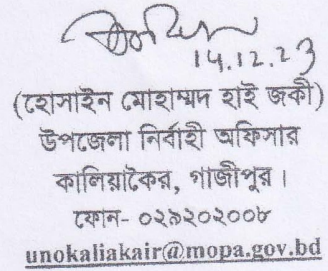 14.12.23
(হোসাইন মোহাম্মদ হাই জকী)
উপজেলা নির্বাহী অফিসার
কালিয়াকৈর, গাজীপুর।
ফোন- ০২৯২০২০০৮
unokaliakair@mopa.gov.bd